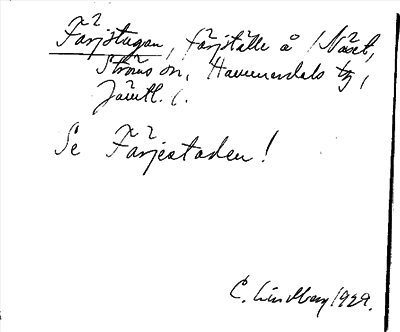 Färjstugan, färjställe å Näset,
Ströms sn, Hammerdals tg,
Jämtl. l.
Se Färjestaden!
C. Lindberg 1929.